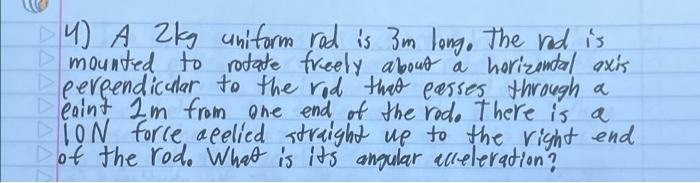 4) A 2kg uniform rod is 3m long. The rod is
mounted to rotate freely about a horizontal axis
perpendicular to the rod that passes through a
point 1m from one end of the rod. There is a
10N force applied straight up to the right end
of the rod. What is its angular acceleration?